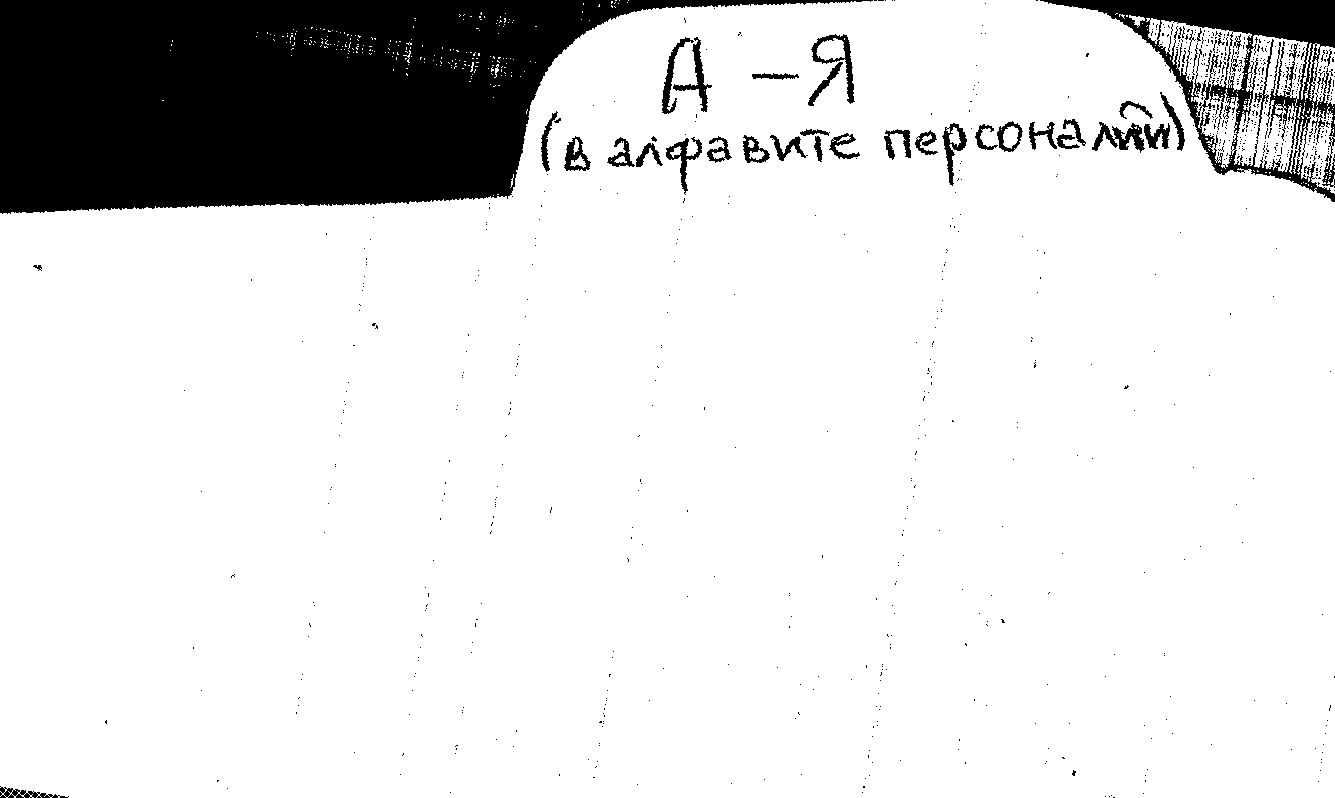 А – Я
(в алфавите персоналий)